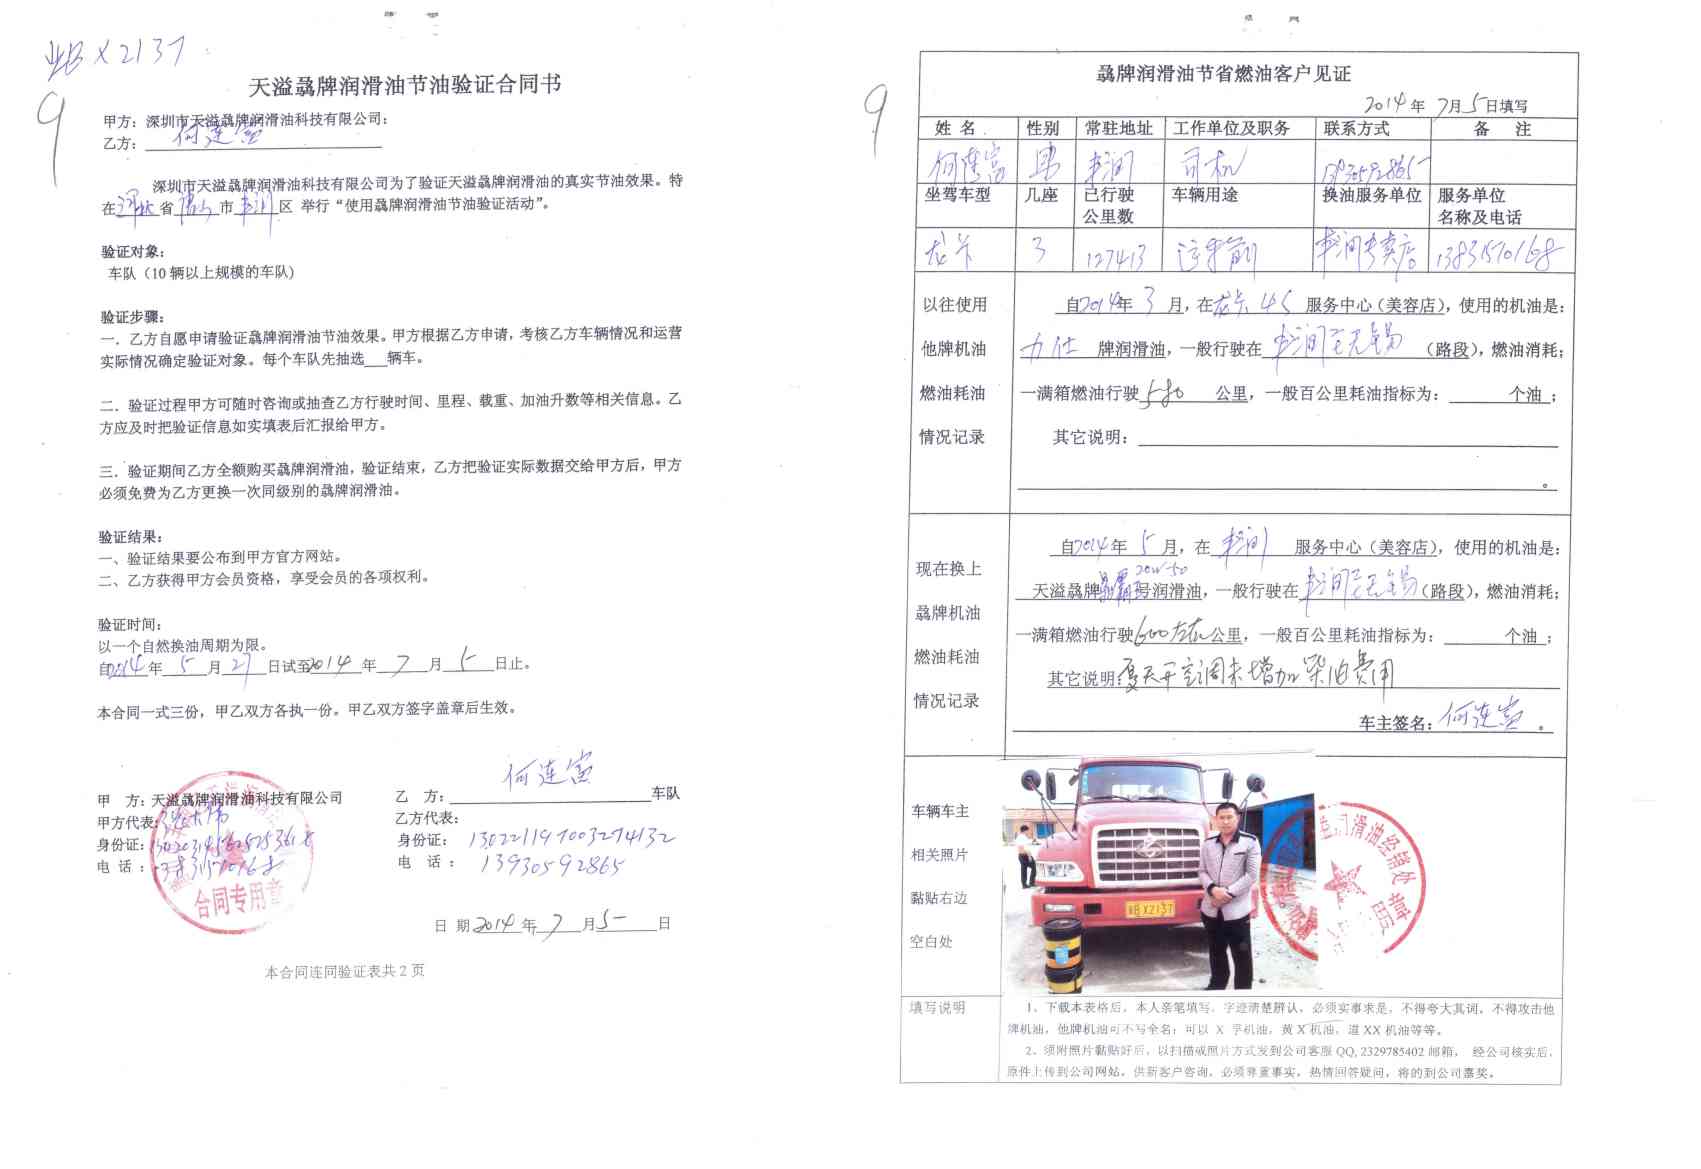 X2137
9
天溢骉牌润滑油节油验证合同书
甲方：深圳市天溢骉牌润滑油科技有限公司：
乙方：何连富
深圳市天溢骉牌润滑油科技有限公司为了验证天溢骉牌润滑油的真实节油效果。特
在河北省唐山市丰润区 举行“使用骉牌润滑油节油验证活动”。
验证对象：
车队（10 辆以上规模的车队）
验证步骤：
一．乙方自愿申请验证骉牌润滑油节油效果。甲方根据乙方申请，考核乙方车辆情况和运营
实际情况确定验证对象。每个车队先抽选___辆车。
二．验证过程甲方可随时咨询或抽查乙方行驶时间、里程、载重、加油升数等相关信息。乙
方应及时把验证信息如实填表后汇报给甲方。
三．验证期间乙方全额购买骉牌润滑油，验证结束，乙方把验证实际数据交给甲方后，甲方
必须免费为乙方更换一次同级别的骉牌润滑油。
验证结果：
一、验证结果要公布到甲方官方网站。
二、乙方获得甲方会员资格，享受会员的各项权利。
验证时间：
以一个自然换油周期为限。
自2014年 5 月 27 日试至2014 年 7 月 5 日止。
本合同一式三份，甲乙双方各执一份。甲乙双方签字盖章后生效。
甲 方：天溢骉牌润滑油科技有限公司
甲方代表：
身份证：
电 话：
合同专用章
何连富
乙 方：车队
乙方代表：
身份证： 130221197003274132
电 话： 13930592865
日 期 2014 年 7 月 5 日
本合同连同验证表共 2 页
9
骉牌润滑油节省燃油客户见证
2014 年 7月 5 日填写
姓 名 性别 常驻地址 工作单位及职务 联系方式 备 注
何连富 男 丰润 司机 13930592865
坐驾车型 几座 已行驶公里数 车辆用途 换油服务单位 服务单位名称及电话
龙卡 3 127413 丰润专卖店 13831570168
以往使用
他牌机油
燃油耗油
情况记录
自2014年 3 月，在龙卡 4S 服务中心（美容店），使用的机油是：
力仕 牌润滑油，一般行驶在 丰润至无锡 （路段），燃油消耗；
一满箱燃油行驶 580 公里，一般百公里耗油指标为： 个油；
其它说明：
。
现在换上
骉牌机油
燃油耗油
情况记录
自2014年 5 月，在 丰润 服务中心（美容店），使用的机油是：
20W-50
天溢骉牌 号润滑油，一般行驶在 丰润至无锡（路段），燃油消耗；
一满箱燃油行驶 600左右 公里，一般百公里耗油指标为： 个油；
其它说明：夏天开空调未增加柴油费用
车主签名：何连富。
车辆车主
相关照片
黏贴右边
空白处
X2137
润滑油经销处
填写说明
1、下载本表格后，本人亲笔填写，字迹清楚辨认，必须实事求是，不得夸大其词，不得攻击他
牌机油，他牌机油可不写全名；可以 X 孚机油，黄 X 机油，道 XX 机油等等。
2、须附照片黏贴好后，以扫描或照片方式发到公司客服 QQ, 2329785402 邮箱， 经公司核实后，
原件上传到公司网站，供新客户咨询，必须尊重事实，热情回答疑问，将的到公司嘉奖。